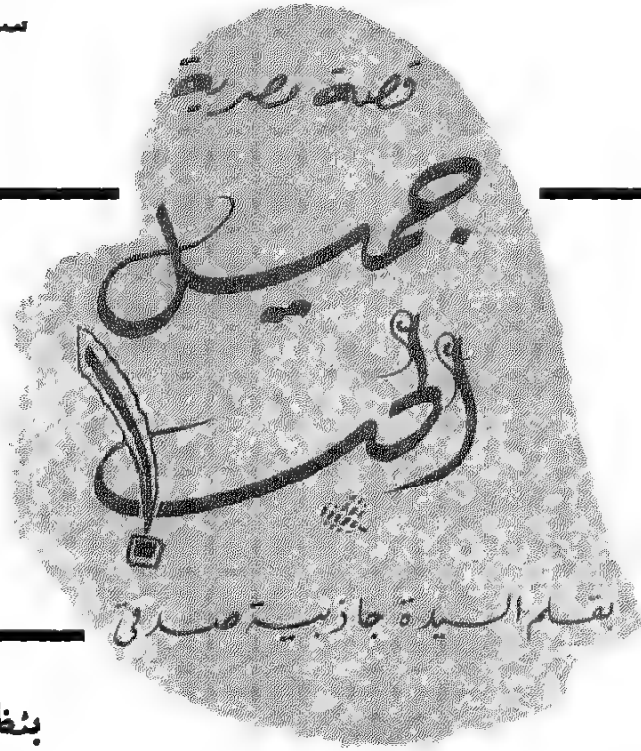 قصة مصرية
جميل
الحب !
بقلم السيدة جاذبية صدقي